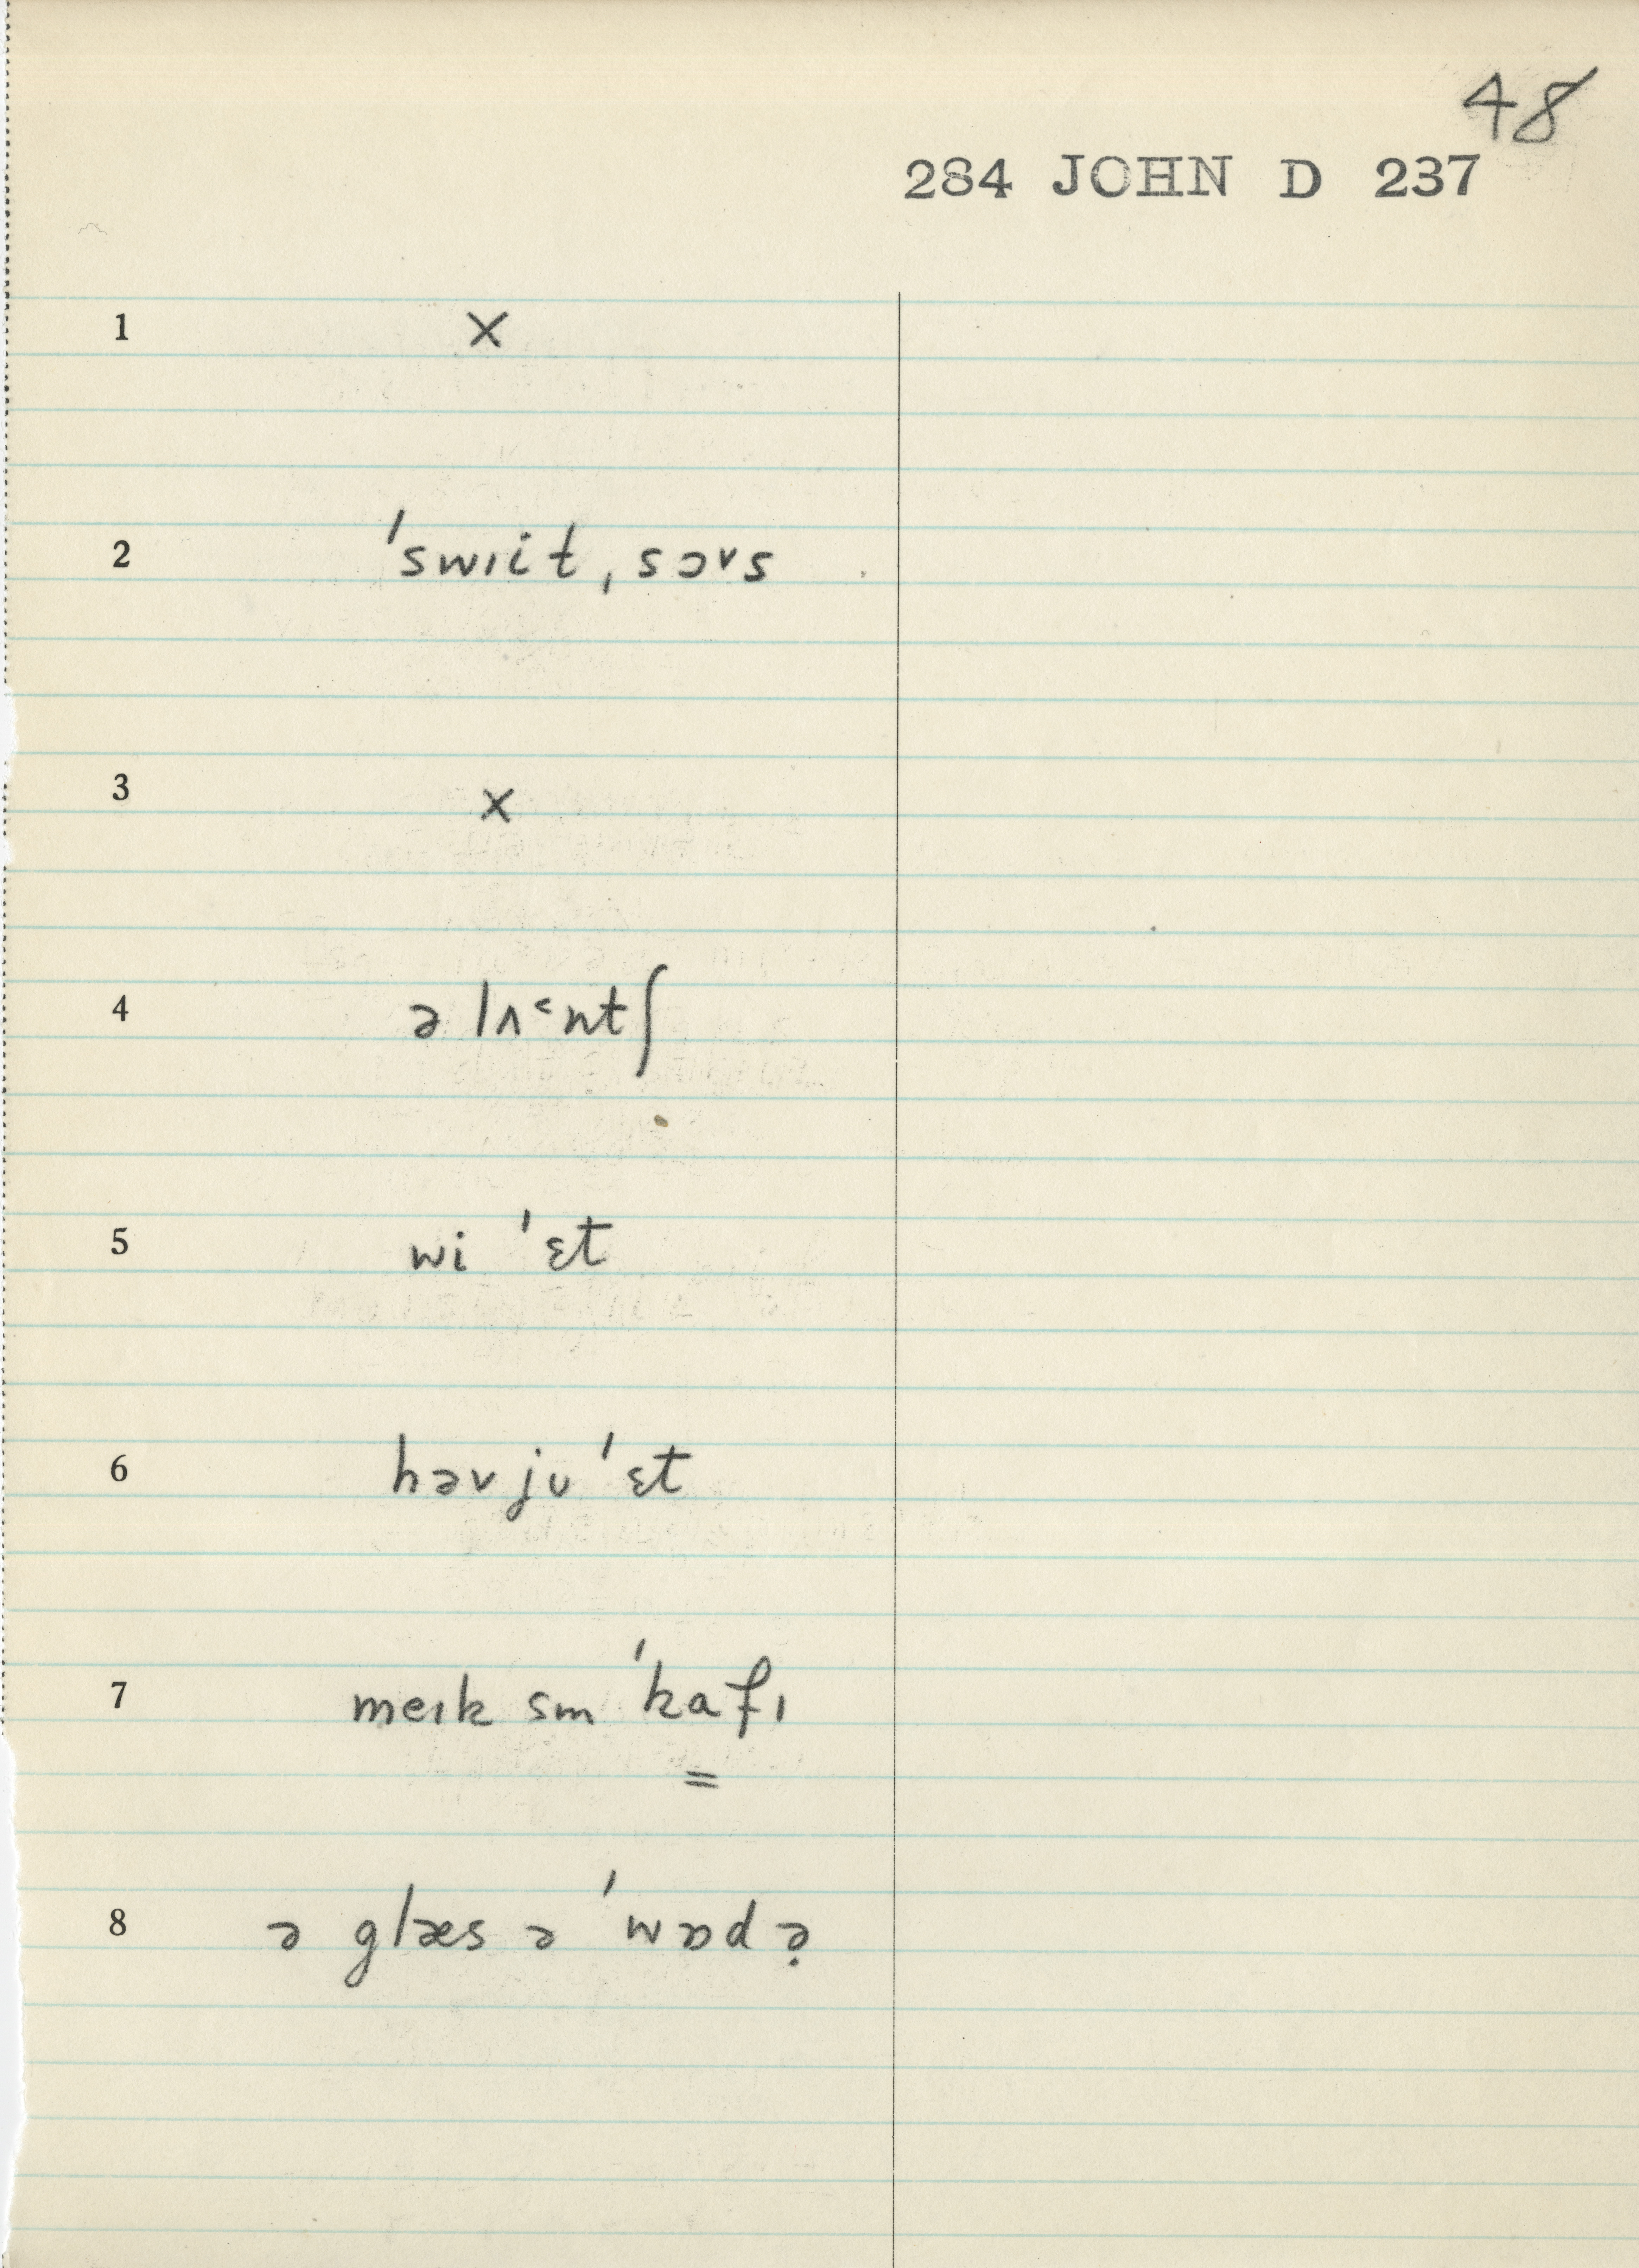 48
284 JOHN D 237
1 ×
2 ˈswɪit ˌsɔᵛs
3 ×
4 ə lʌ˂ntʃ
5 wi ˈɛt
6 həv jʊ ˈɛt
7 meɪk sm ˈkafɪ
=
8 ə glæs ə ˈwɒdə̣